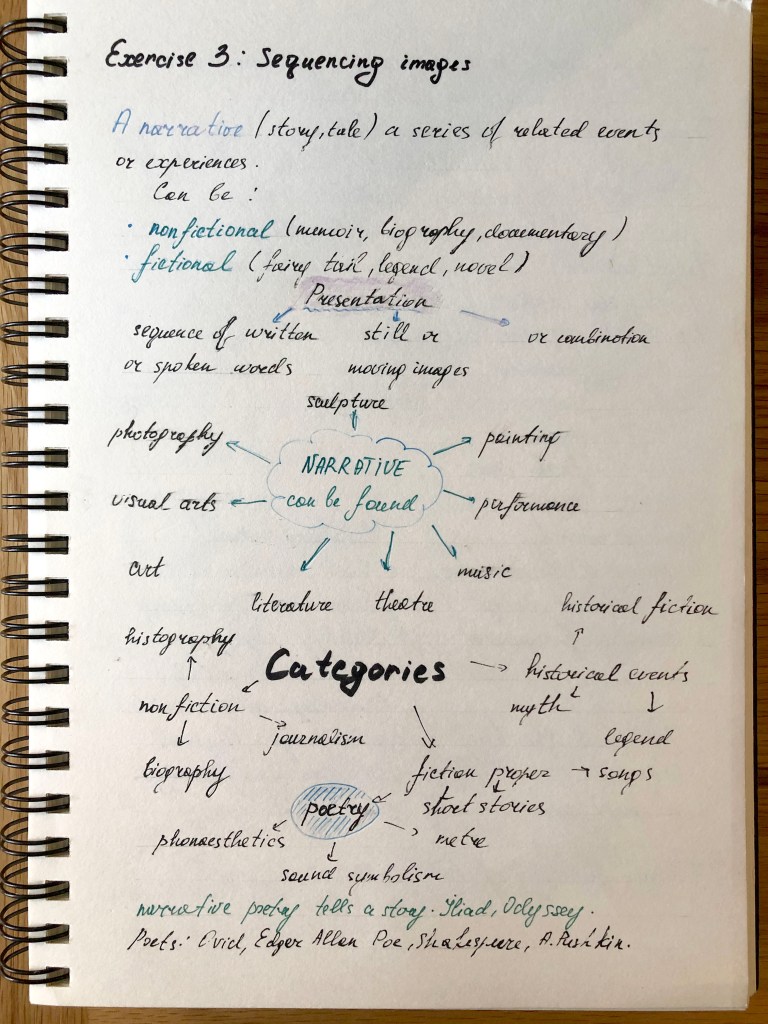 Exercise 3: Sequencing images
A narrative (story, tale) a series of related events
or experiences.
Can be:
· nonfictional (memoir, biography, documentary)
· fictional (fairy tail, legend, novel)
Presentation
sequence of written still or or combination
or spoken words moving images
sculpture
photography painting
NARRATIVE
visual arts can be found performance
art music
literature theatre historical fiction
histography
Categories historical events
non fiction myth
journalism legend
biography fiction proper songs
poetry short stories
phonaesthetics metre
sound symbolism
narrative poetry tells a story. Iliad, Odyssey.
Poets: Ovid, Edger Allan Poe, Shakespeare, A. Pushkin.